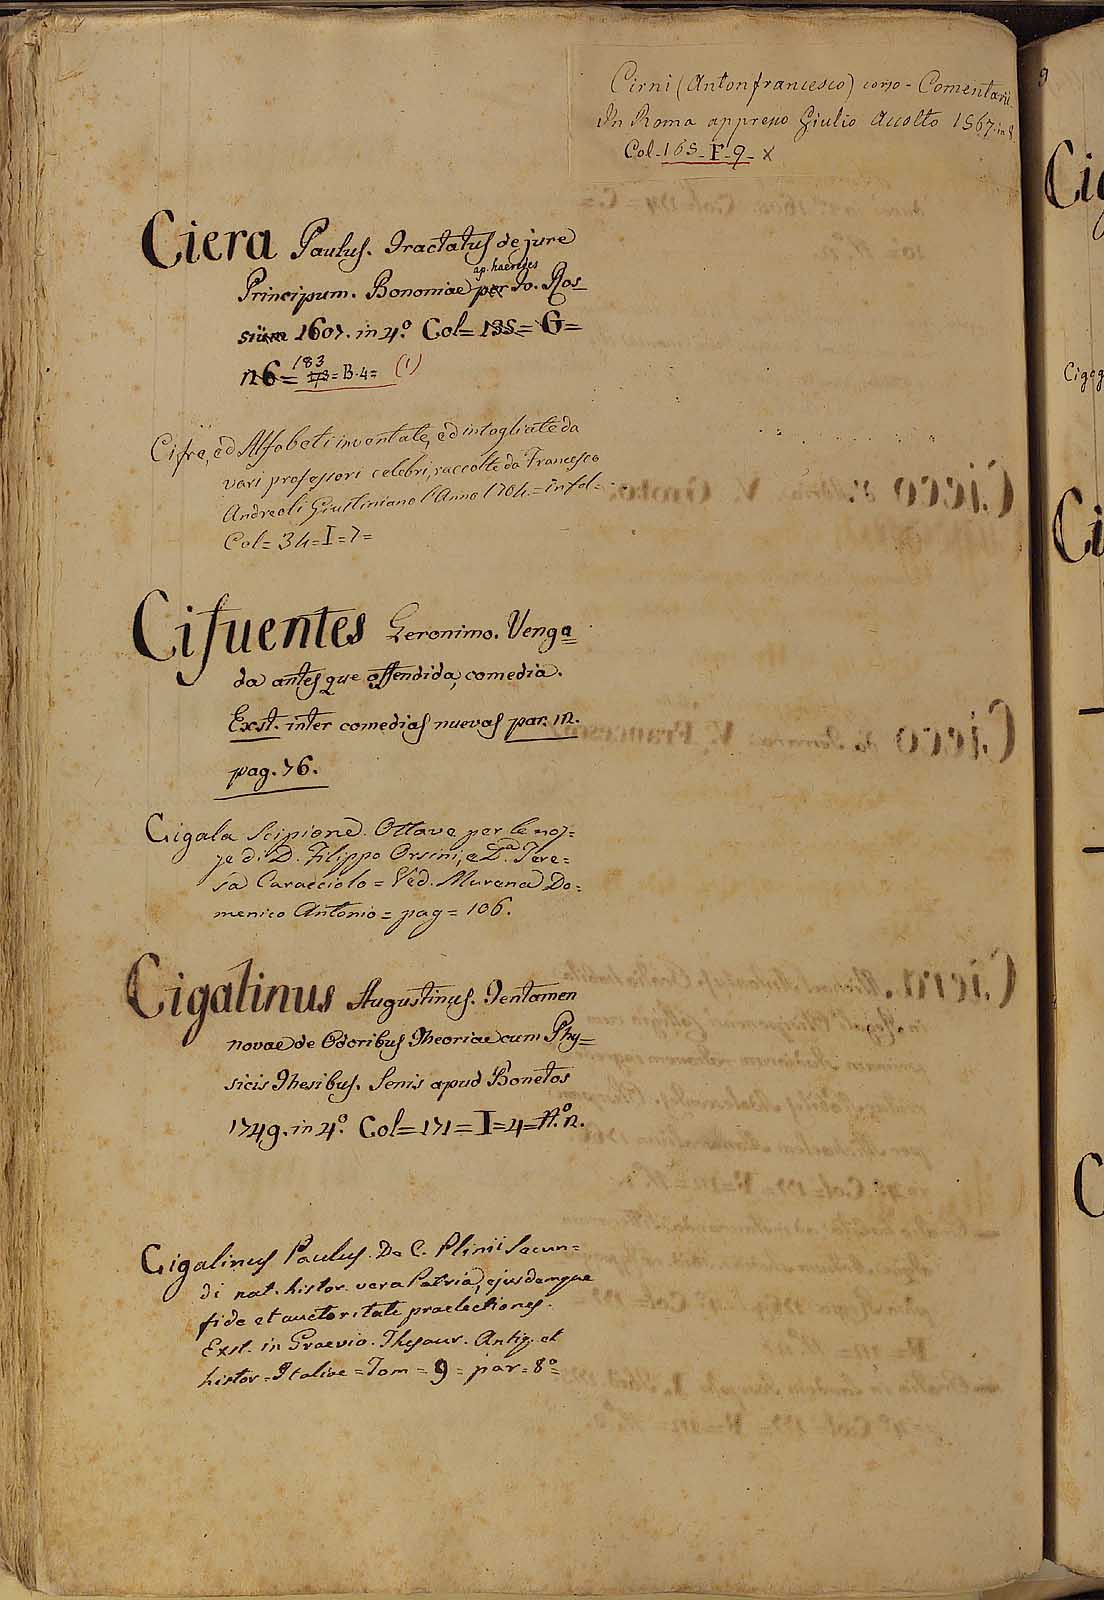 Cirni (Antonfrancesco) corso - Comentarii
In Roma appresso Giulio Accolto 1567. in 8
Col-165-F-9- x
Ciera Paulus. Tractatus de jure
Principum. Bononiae per Io. Ros=
ap. haeredes
sium 1607. in 4.º Col= 135= G=
n6= 183 173= B.4= (1)
Cifre, ed Alfabeti inventate, ed intagliate da
vari professori celebri, raccolte da Francesco
Andreoli Giustiniano l'Anno 1704.= in fol=
Col= 34= I= 7=
Cifuentes Geronimo. Venga=
da antes que offendida, comedia.
Exst. inter comedias nuevas par. 12.
pag. 76.
Cigala Scipione. Ottave per le noz=
ze di D. Filippo Orsini, e D.a Tere=
sa Caracciolo = Ved. Murena Do=
menico Antonio = pag = 106.
Cigalinus Augustinus. Tentamen
novae de Odoribus Theoriae cum Phy=
sicis Thesibus. Senis apud Bonetos
1749. in 4.º Col= 171= I=4= n.
Cigalinus Paulus. De C. Plinii Secun=
di nat. histor. vera Patria, ejusdemque
fide et auctoritate praelectiones.
Exst. in Graevio. Thesaur. Antiq. et
histor. Italiae = Tom = 9 = par = 8º=
9
Cig
Cigog
Ci
C